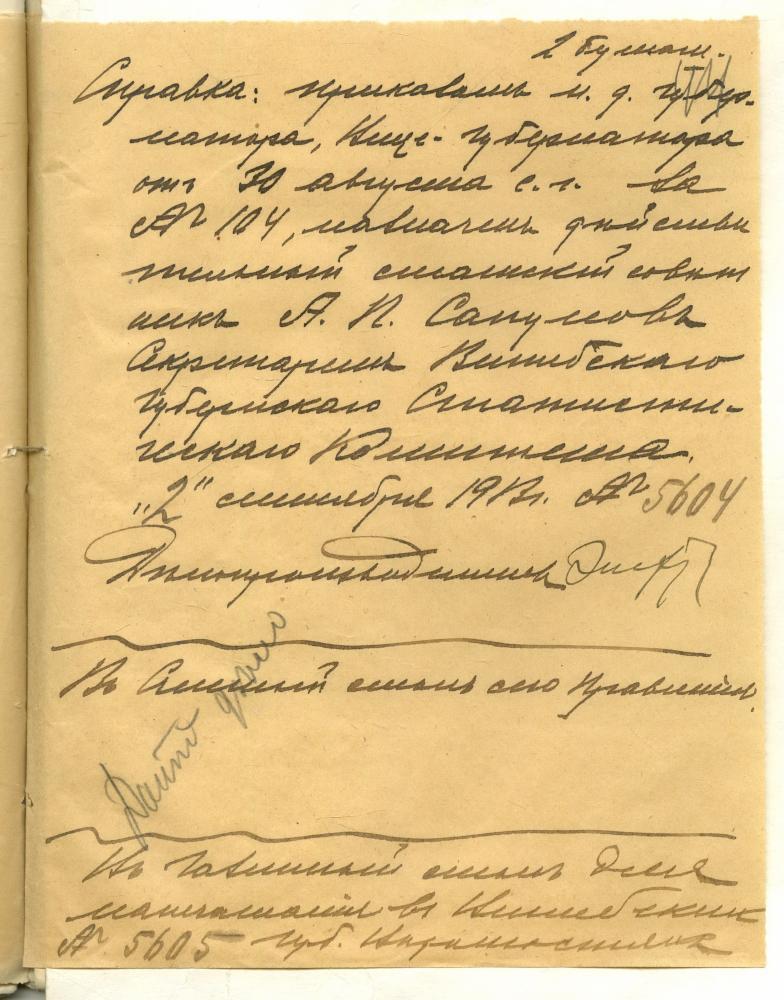 2 бумаги.
Справка: приказомъ и. д. Губер-
натора, Вице-Губернатора
отъ 30 августа с. г. за
№ 104, назначенъ действи
тельный статскій совѣт
никъ А. П. Сапуновъ
Секретаремъ Витебскаго
Губернскаго Статисти-
ческаго Комитета.
"2" сентября 1913 г. № 5604
Дѣлопроизводитель
Въ Счетный столъ сего Правленія.
Дайте дѣло
Въ Газетный столъ для
напечатанія въ Витебскихъ
№ 5605 Губ. Вѣдомостяхъ